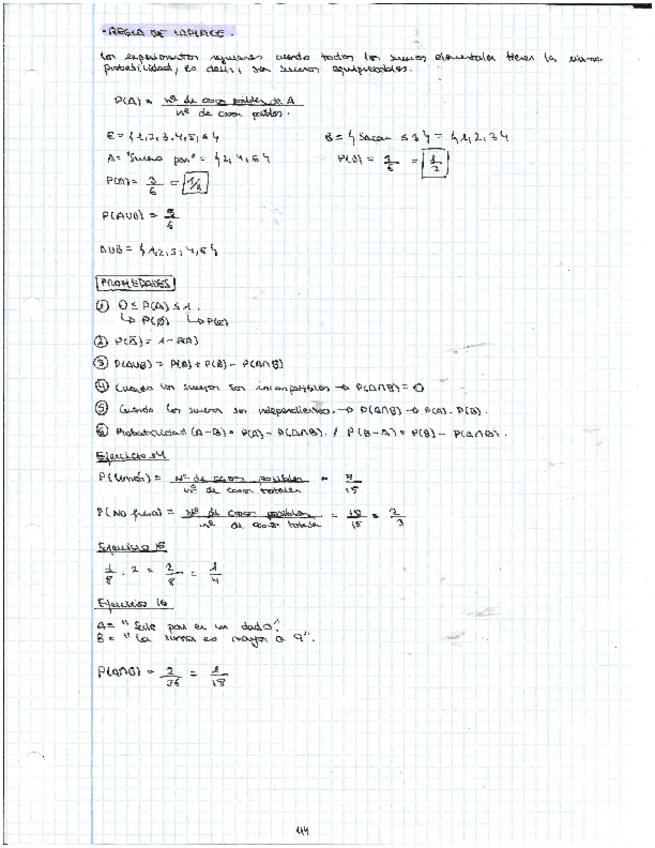 · REGLA DE LAPLACE.
Los experimentos regulares cuando todos los sucesos elementales tienen la misma
probabilidad, es decir, son sucesos equiprobables.
P(A) = nº de casos posibles de A / nº de casos posibles.
E = {1,2,3,4,5,6}
B = {Sacar ≤ 3} = {1,2,3}
A = "Suceso par" = {2,4,6}
P(B) = 3/6 = 1/2
P(A) = 3/6 = 1/2
P(AUB) = 5/6
= {1,2,3,4,6}
PROPIEDADES
① 0 ≤ P(A) ≤ 1.
↳ P(Ø) ↳ P(E)
② P(Ā) = 1 - P(A)
③ P(AUB) = P(A) + P(B) - P(A∩B)
④ Cuando los sucesos son incompatibles → P(A∩B) = 0
⑤ Cuando los sucesos son independientes. → P(A∩B) → P(A). P(B).
⑥ Probabilidad (A-B) = P(A) - P(A∩B). / P(B-A) = P(B) - P(A∩B).
Ejercicio 14
P(limón) = Nº de casos posibles / nº de casos totales =
P(No fresa) = Nº de casos posibles / nº de casos totales = 10/15 = 2/3
Ejercicio 15
1/8 . 2 = 2/8 = 1/4
Ejercicio 16
A = "Sale par en un dado".
B = "La suma es mayor a 9".
P(A∩B) = 2/36 = 1/18